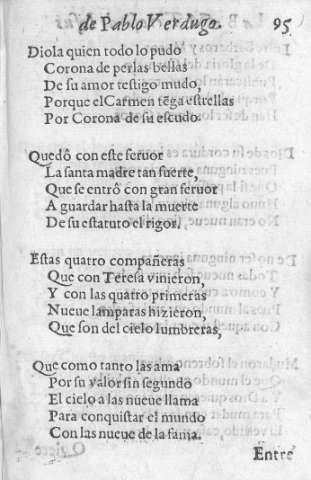 de Pablo Verdugo. 95
Diola quien todo lo pudo
Corona de perlas bellas
De su amor testigo mudo,
Porque el Carmen tẽga estrellas
Por Corona de su escudo.
Quedô con este feruor
La santa madre tan fuerte,
Que se entrô con gran feruor
A guardar hasta la muerte
De su estatuto el rigor.
Estas quatro compañeras
Que con Teresa vinieron,
Y con las quatro primeras
Nueue lamparas hizieron,
Que son del cielo lumbreras,
Que como tanto las ama
Por su valor sin segundo
El cielo a las nueue llama
Para conquistar el mundo
Con las nueue de la fama.
Entre